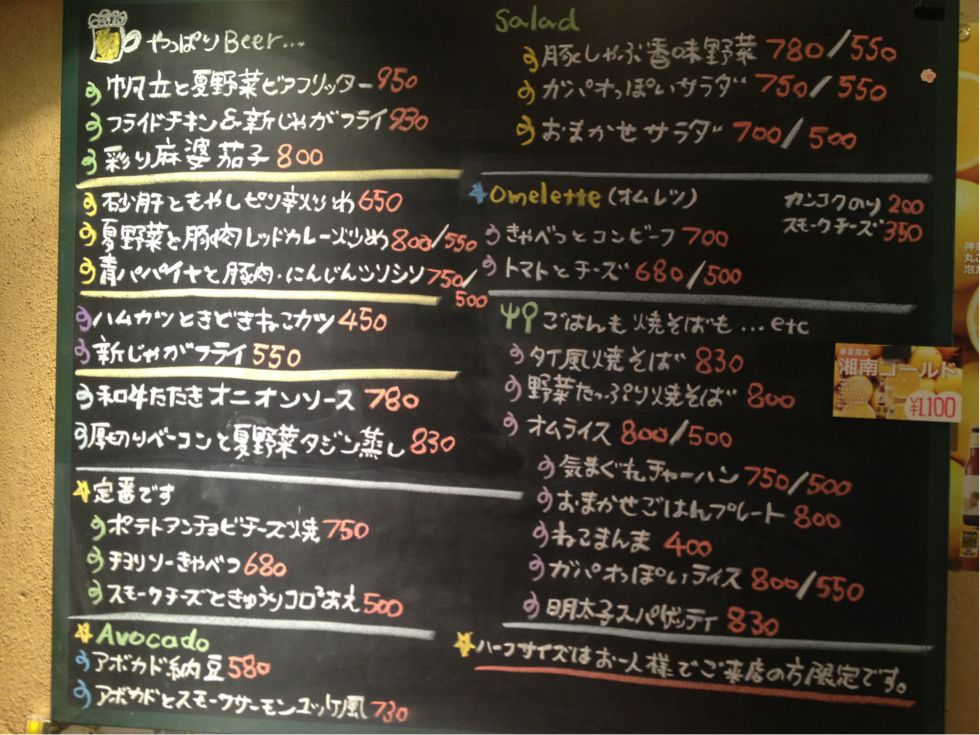 やっぱりBeer...
帆立と夏野菜ビアフリッター950
フライドチキン&新じゃがフライ930
彩り麻婆茄子800
砂肝ともやしピリ辛炒め650
夏野菜と豚肉レッドカレー炒め800/550
青パパイヤと豚肉・にんじんソソシソ750/
500
ハムカツときどきねこカツ450
新じゃがフライ550
和牛たたきオニオンソース780
厚切りベーコンと夏野菜タジン蒸し830
定番です
ポテトアンチョビチーズ焼750
チョリソーきゃべつ680
スモークチーズときゅうりコロコロあえ500
Avocado
アボカド納豆580
アボカドとスモークサーモンユッケ風730
Salad
豚しゃぶ香味野菜780/550
ガパオっぽいサラダ750/550
おまかせサラダ700/500
Omelette(オムレツ)
カンコクのり200
スモークチーズ350
きゃべつとコンビーフ700
トマトとチーズ680/500
ごはんも焼そばも...etc
タイ風焼そば830
野菜たっぷり焼そば800
オムライス800/500
気まぐれチャーハン750/500
おまかせごはんプレート800
ねこまんま400
ガパオっぽいライス800/550
明太子スパゲッティ830
ハーフサイズはお一人様でご来店の方限定です。
春夏限定
湘南ゴールド
¥1,100